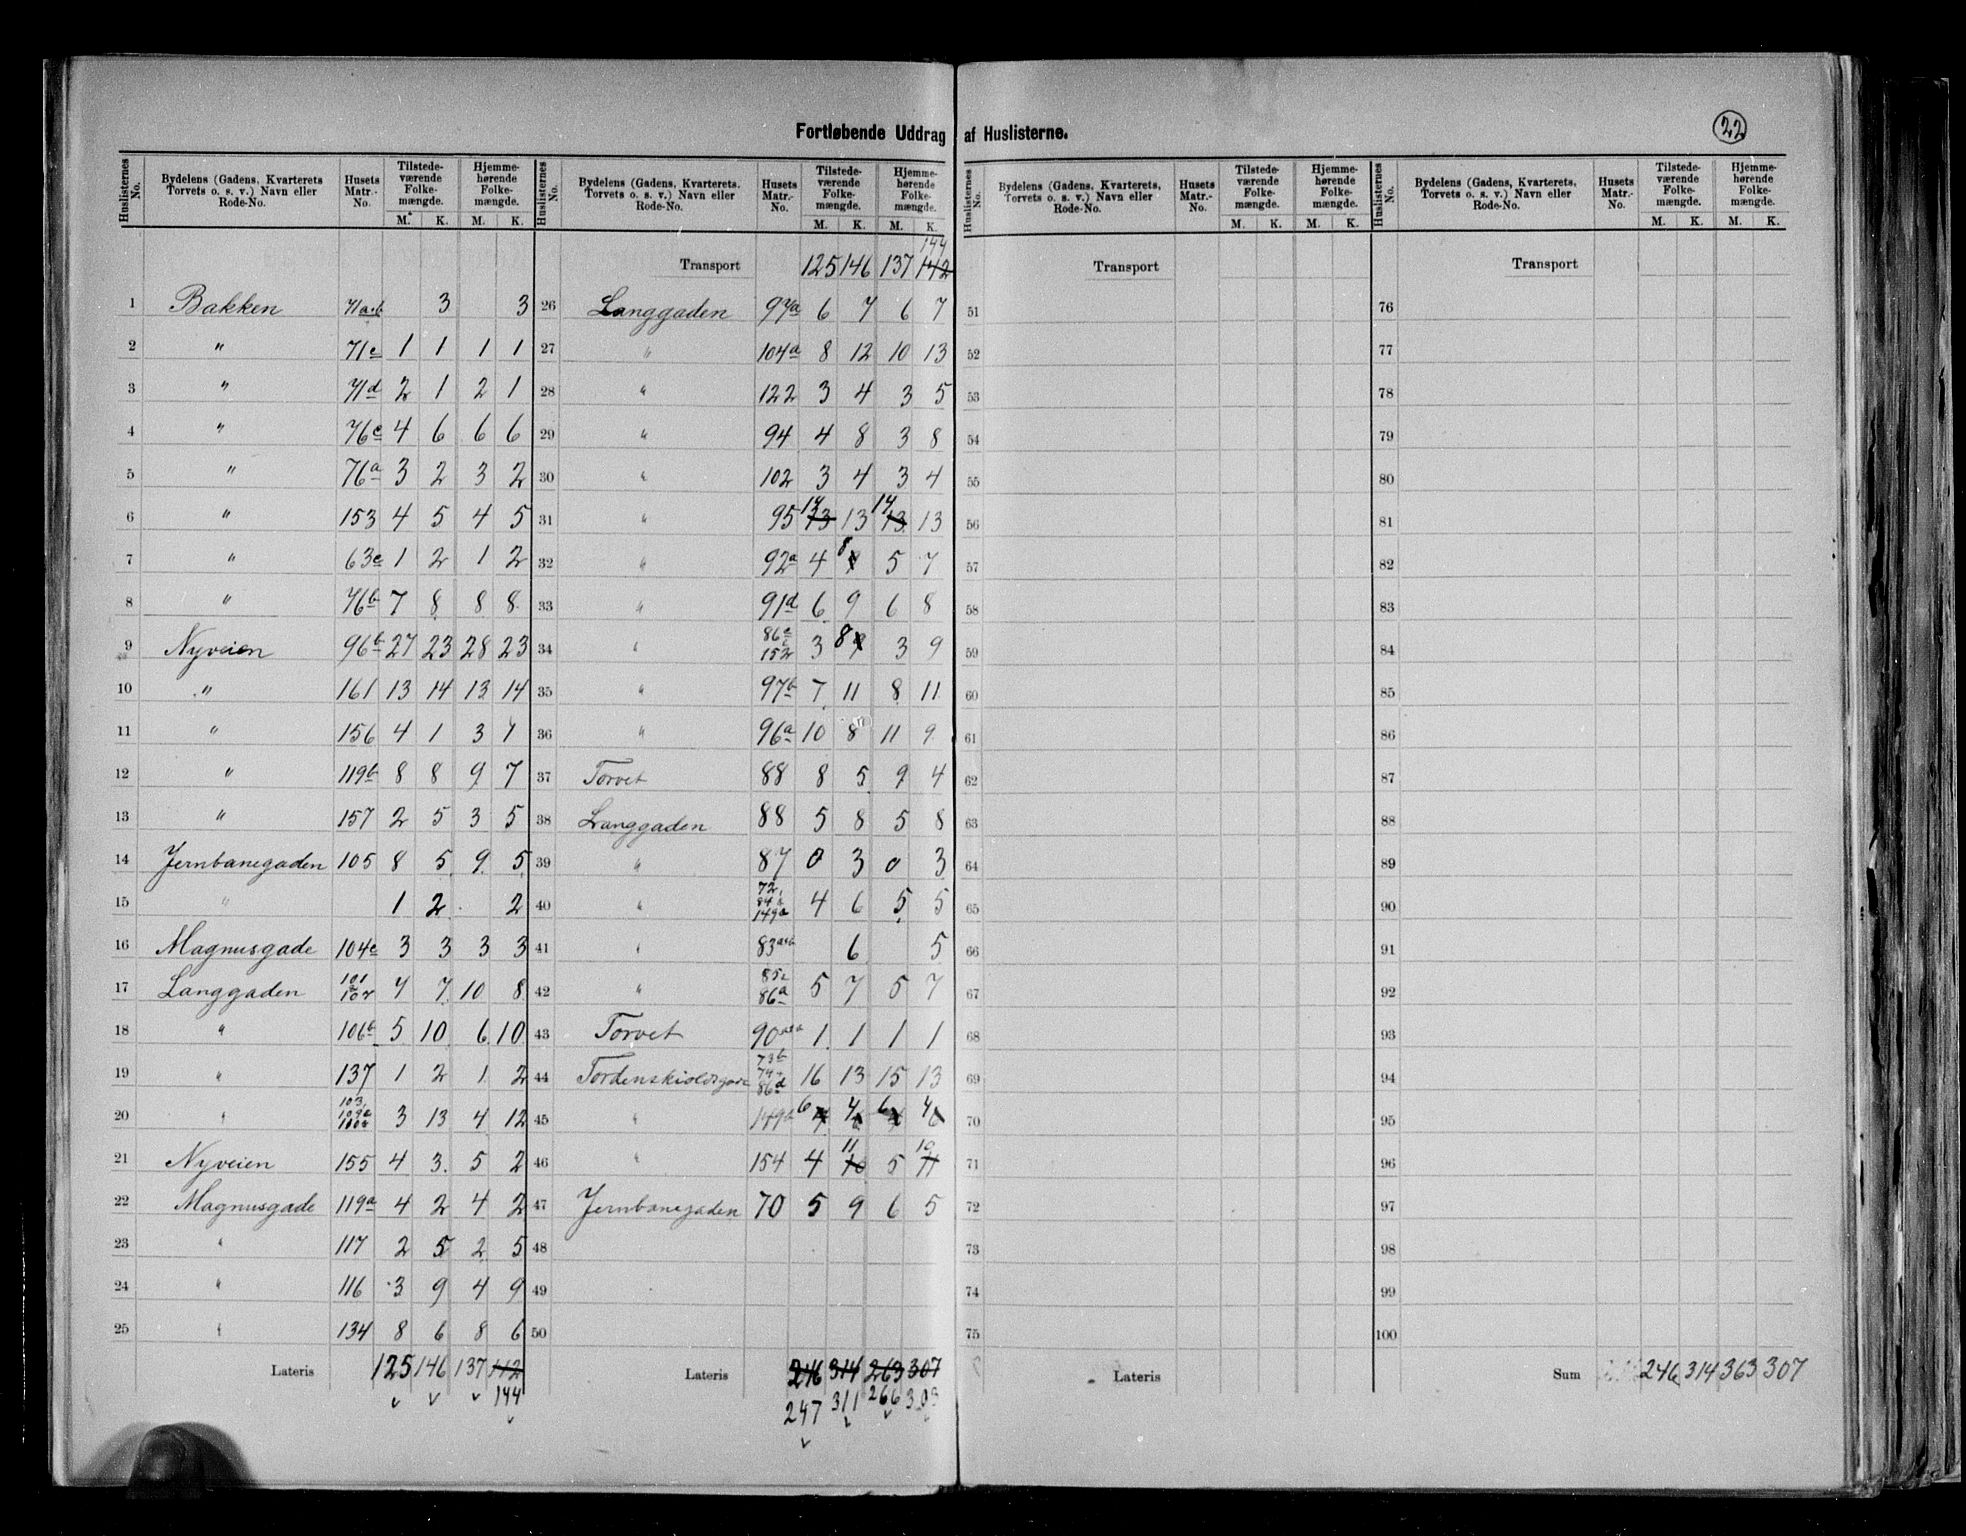 Fortløbende Uddrag af Huslisterne.
22
Huslisternes No. | Bydelens (Gadens, Kvarterets Torvets o. s. v.) Navn eller Rode-No. | Husets Matr.-No. | Tilstede-værende Folke-mængde. M. K. | Hjemme-hørende Folke-mængde. M. K.
1 Bakken 71a+b 3 3
2 " 71c 1 1 1 1
3 " 71d 2 1 2 1
4 " 76c 4 6 6 6
5 " 76a 3 2 3 2
6 " 153 4 5 4 5
7 " 63c 1 2 1 2
8 " 76b 7 8 8 8
9 Nyveien 96b 27 23 28 23
10 " 161 13 14 13 14
11 " 156 4 1 3 1
12 " 119b 8 8 9 7
13 " 157 2 5 3 5
14 Jernbanegaden 105 8 5 9 5
15 " 1 2 2
16 Magnusgade 104c 3 3 3 3
17 Langgaden 101 102 7 7 10 8
18 " 106b 5 10 6 10
19 " 137 1 2 1 2
20 " 103, 109a 3 13 4 12
21 Nyveien 155 4 3 5 2
22 Magnusgade 119a 4 2 4 2
23 " 117 2 5 2 5
24 " 116 3 9 4 9
25 " 134 8 6 8 6
Lateris 125 146 137 142
144
Huslisternes No. | Bydelens (Gadens, Kvarterets. Torvets o. s. v.) Navn eller Rode-No. | Husets Matr.-No. | Tilstede-værende Folke-mængde. M. K. | Hjemme-hørende Folke-mængde. M. K.
144
Transport 125 146 137 142
26 Langgaden 97a 6 7 6 7
27 " 104a 8 12 10 13
28 " 122 3 4 3 5
29 " 94 4 8 3 8
30 " 102 3 4 3 4
31 " 95 14 13 13 14 13 13
32 " 92a 4 8 5 7
33 " 91d 6 9 6 8
34 " 86c 152 3 8 3 9
35 " 97b 7 11 8 11
36 " 96a 10 8 11 9
37 Torvet 88 8 5 9 4
38 Langgaden 88 5 8 5 8
39 " 87 0 3 0 3
40 " 72, 84 149a 4 6 5 5
41 " 83a+b 6 5
42 " 85 86a 5 7 5 7
43 Torvet 90 1 1 1 1
44 Tordenskioldsgade 73b 86d 16 13 15 13
45 " 149b 6 4 6 4
46 " 154 4 11 10 5 10 11
47 Jernbanegaden 70 5 9 6 5
48
49
50
Lateris 246 314 263 307
247 311 266 303
Huslisternes No. | Bydelens (Gadens, Kvarterets, Torvets o. s. v.) Navn eller Rode-No. | Husets Matr.-No. | Tilstede-værende Folke-mængde. M. K. | Hjemme-hørende Folke-mængde. M. K.
Transport
51
52
53
54
55
56
57
58
59
60
61
62
63
64
65
66
67
68
69
70
71
72
73
74
75
Lateris
Huslisternes No. | Bydelens (Gadens, Kvarterets, Torvets o. s. v.) Navn eller Rode-No. | Husets Matr.-No. | Tilstede-værende Folke-mængde. M. K. | Hjemme-hørende Folke-mængde. M. K.
Transport
76
77
78
79
80
81
82
83
84
85
86
87
88
89
90
91
92
93
94
95
96
97
98
99
100
Sum 246 314 363 307